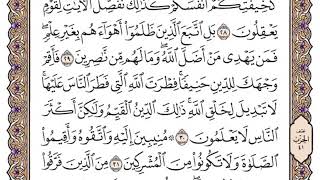 كَخِيفَتِكُمْ أَنفُسَكُمْ ۚ كَذَٰلِكَ نُفَصِّلُ الْآيَاتِ لِقَوْمٍ
يَعْقِلُونَ ٢٨ بَلِ اتَّبَعَ الَّذِينَ ظَلَمُوا أَهْوَاءَهُم بِغَيْرِ عِلْمٍ ۖ
فَمَن يَهْدِي مَنْ أَضَلَّ اللَّهُ ۖ وَمَا لَهُم مِّن نَّاصِرِينَ ٢٩ فَأَقِمْ
وَجْهَكَ لِلدِّينِ حَنِيفًا ۚ فِطْرَتَ اللَّهِ الَّتِي فَطَرَ النَّاسَ عَلَيْهَا ۚ
لَا تَبْدِيلَ لِخَلْقِ اللَّهِ ۚ ذَٰلِكَ الدِّينُ الْقَيِّمُ وَلَٰكِنَّ أَكْثَرَ
النَّاسِ لَا يَعْلَمُونَ ٣٠ ۞ مُنِيبِينَ إِلَيْهِ وَاتَّقُوهُ وَأَقِيمُوا
الصَّلَاةَ وَلَا تَكُونُوا مِنَ الْمُشْرِكِينَ ٣١ مِنَ الَّذِينَ فَرَّقُوا
الحزب
٤١